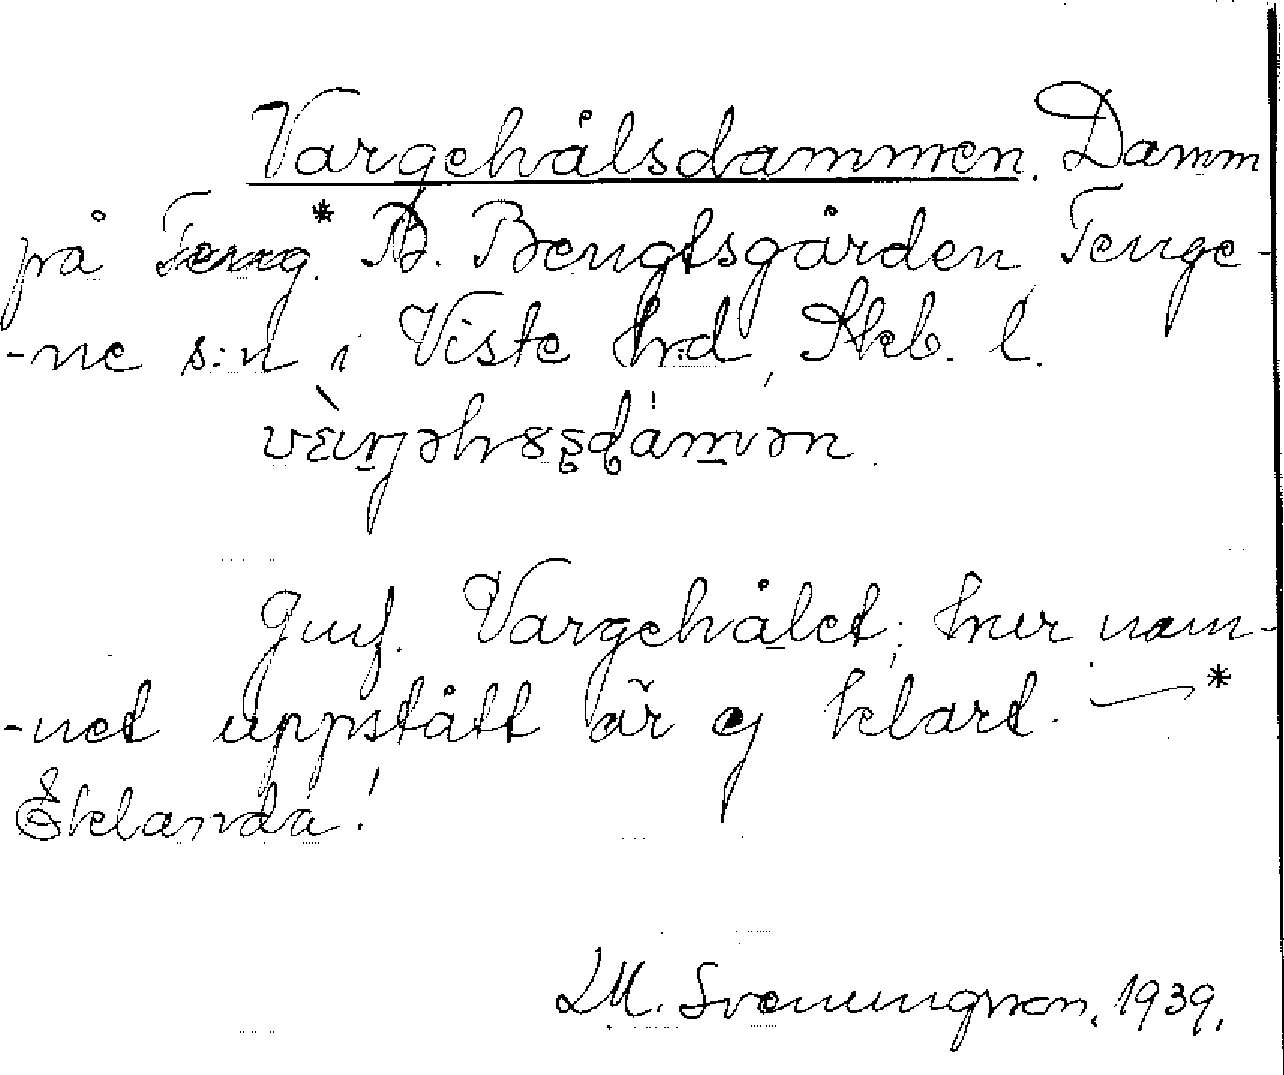 Vargehålsdammen. Damm
på Teng.* B. Bengtsgården, Tenge-
-ne s:n i Viste hrd, Skb. l.
Jmf. Vargehålet; hur nam-
-net uppstått är ej klart. — *
Eklanda!
M. Svenungsson. 1939.